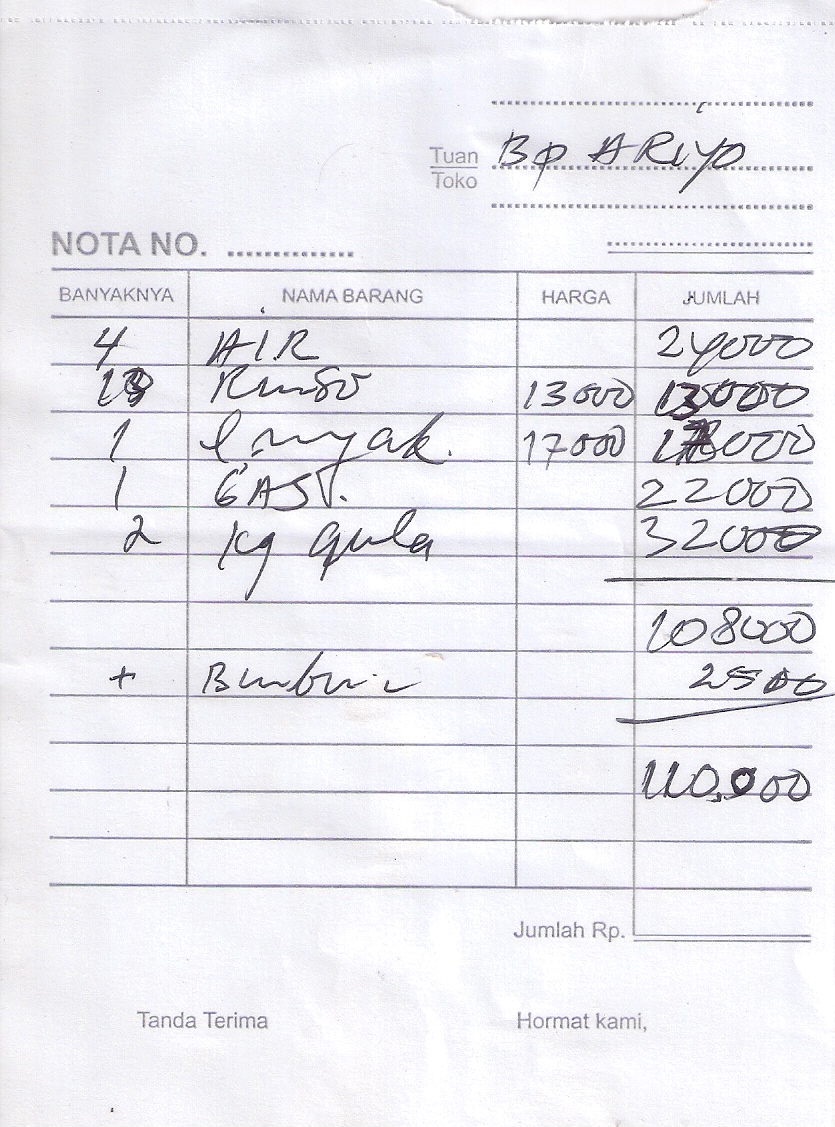 Tuan Bp ARiyo
Toko
NOTA NO. ..............
BANYAKNYA NAMA BARANG HARGA JUMLAH
4 AIR 24000
1 Rinso 13000 13000
1 l mnyak. 17000 17000
1 GAS. 22000
2 kg gula 32000
108000
+ Bumbu 2500
110.000
Jumlah Rp.
Tanda Terima Hormat kami,